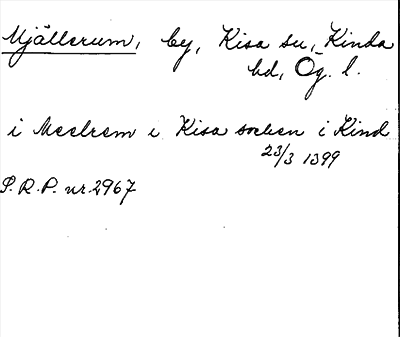 Mjällerum, by, Kisa sn, Kinda
hd, Ög. l.
i Meelrem i Kisa soken i Kind
23/3 1399
S.R.P. nr 2967